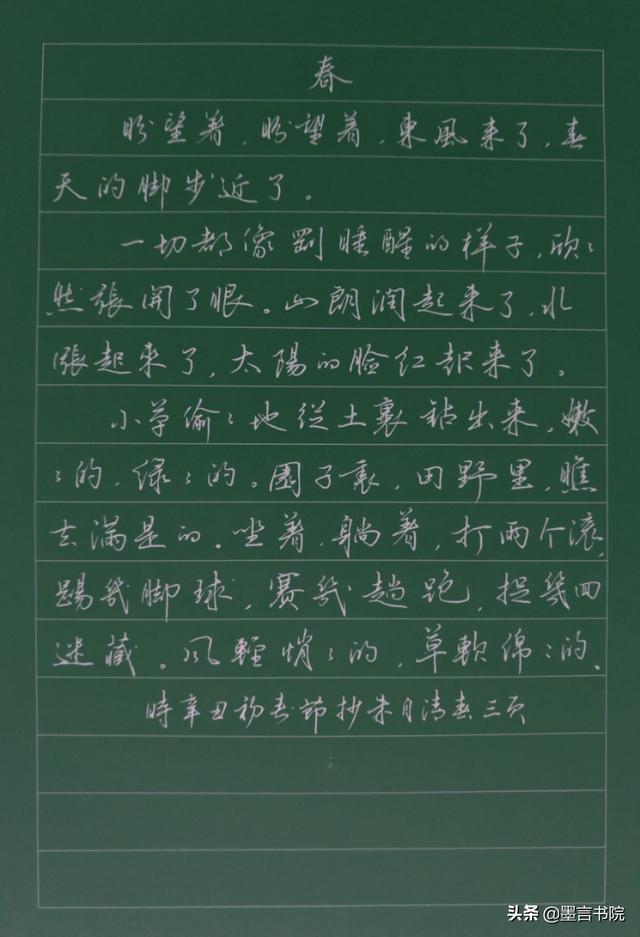 春
盼望着,盼望着,東風来了,春
天的脚步近了。
一切都像剛睡醒的样子,欣々
然張開了眼。山朗润起来了,水
漲起来了,太陽的脸红起来了。
小草偷々地從土裏鑽出来,嫩
々的,绿々的。園子裏,田野里,瞧
去满是的。坐着,躺着,打两个滚,
踢幾脚球,賽幾趟跑,捉幾回
迷藏。风輕悄々的,草軟绵々的。
時辛丑初春節抄朱自清春三页
头条 @墨言书院